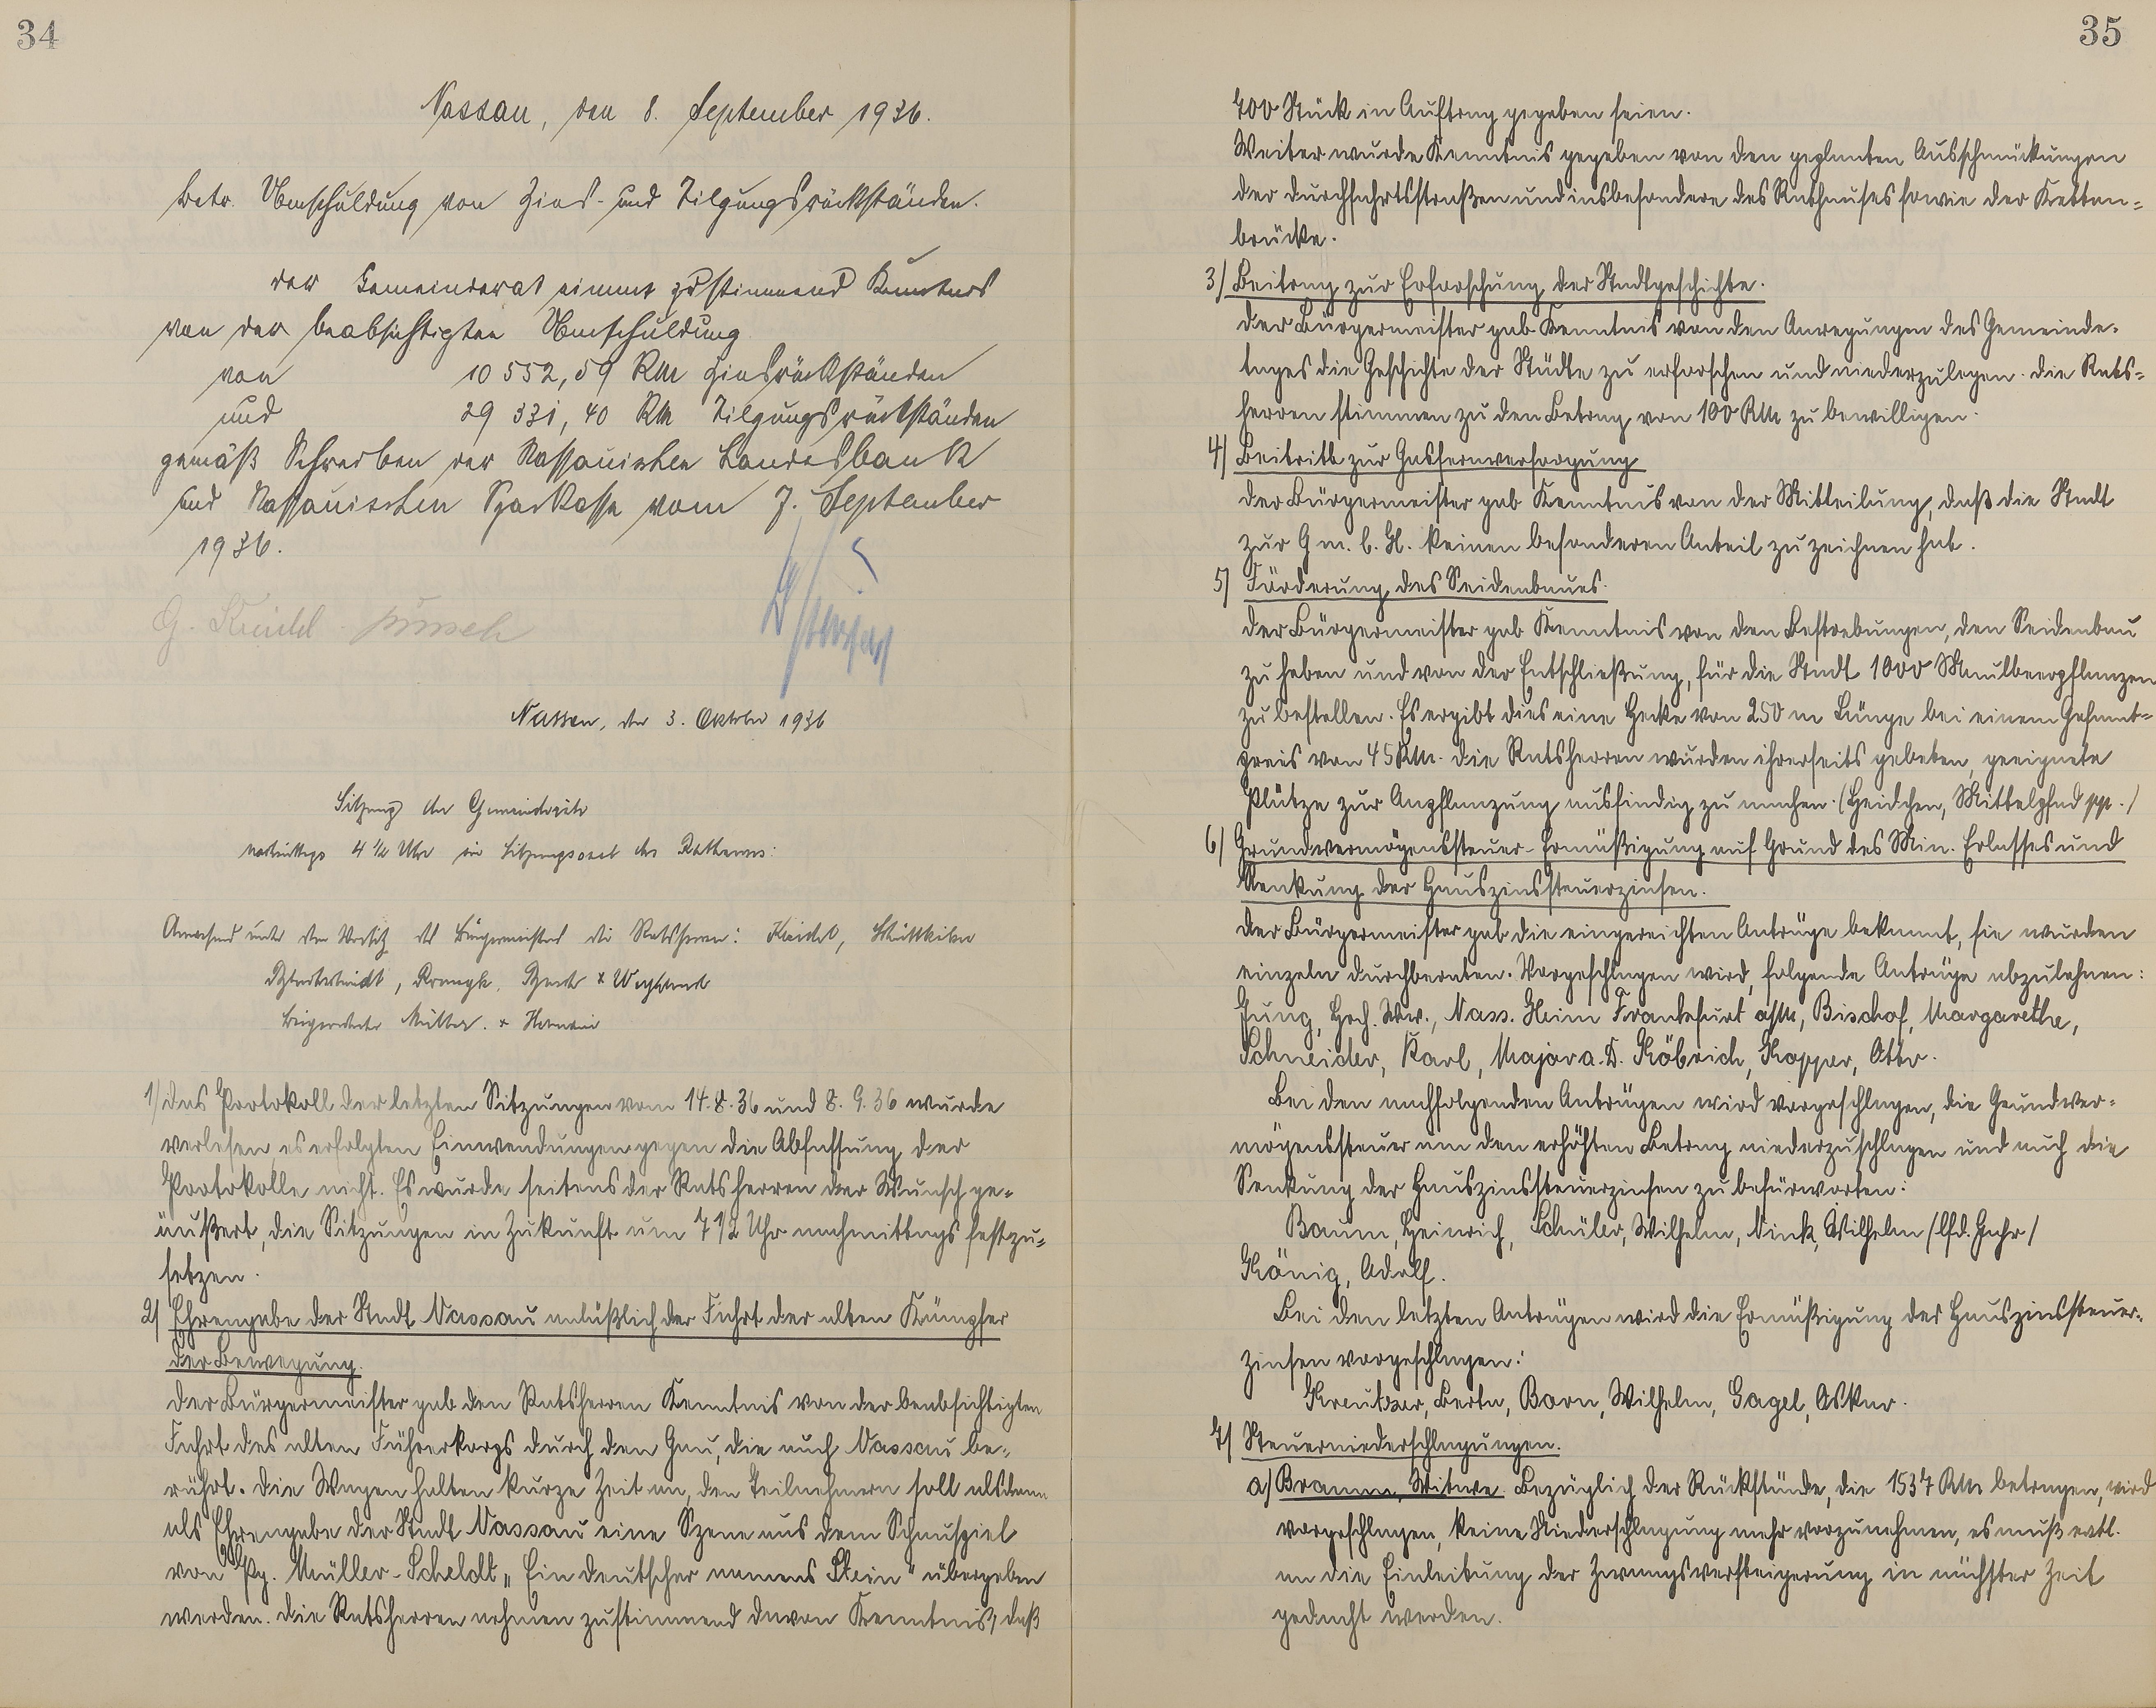 34
Nassau, den 8. September 1936.
betr. Umschuldung von Zins- und Tilgungsrückständen.
Der Gemeinderat nimmt zustimmend Kenntnis
von der beabsichtigten Umschuldung
von 10 552,59 RM Zinsrückständen
und 29 331,40 RM Tilgungsrückständen
gemäß Schreiben der Nassauischen Landesbank
und Nassauischen Sparkasse vom 7. September
1936.
Nassau, den 3. Oktober 1936
Sitzung der Gemeinderäte
nachmittags 4 1/2 Uhr im Sitzungssaal des Rathauses:
Anwesend unter dem Vorsitz des Bürgermeisters die Ratsherren: Keidel,
Beigeordnete Müller +
1) Das Protokoll der letzten Sitzungen vom 14.8.36 und 8.9.36 wurde
verlesen, es erfolgten Einwendungen gegen die Abfassung der
Protokolle nicht. Es wurde seitens der Ratsherren der Wunsch ge-
äußert, die Sitzungen in Zukunft um 7 1/2 Uhr nachmittags festzu-
setzen.
2) Ehrengabe der Stadt Nassau anläßlich der Fahrt der alten Kämpfer
der Bewegung.
Der Bürgermeister gab den Ratsherren Kenntnis von der beabsichtigten
Fahrt des alten Führerkorps durch den Gau, die auch Nassau be-
rührt. Die Wagen halten kurze Zeit an, den Teilnehmern soll alsdann
als Ehrengabe der Stadt Nassau eine Szene aus dem Schauspiel
von Pg. Müller-Scheldt „Ein Deutscher namens Stein" übergeben
werden. Die Ratsherren nehmen zustimmend davon Kenntnis, daß
35
400 Stück in Auftrag gegeben seien.
Weiter wurde Kenntnis gegeben von den geplanten Ausschmückungen
der Durchfahrtsstraßen und insbesondere des Rathauses sowie der Ketten-
brücke.
3) Beitrag zur Erforschung der Stadtgeschichte.
Der Bürgermeister gab Kenntnis von den Anregungen des Gemeinde-
tages die Geschichte der Städte zu erforschen und niederzulegen. Die Rats-
herren stimmen zu den Betrag von 100 RM zu bewilligen.
4) Beitritt zur Gasfernversorgung
Der Bürgermeister gab Kenntnis von der Mitteilung, daß die Stadt
zur G m. b. H. keinen besonderen Anteil zu zeichnen hat.
5) Förderung des Seidenbaues.
Der Bürgermeister gab Kenntnis von den Bestrebungen, den Seidenbau
zu heben und von der Entschließung, für die Stadt 1000 Maulbeerpflanzen
zu bestellen. Es ergibt dies eine Hecke von 250 m Länge bei einem Gesamt-
preis von 45 RM. Die Ratsherren wurden ihrerseits gebeten, geeignete
Plätze zur Anpflanzung ausfindig zu machen. (Heidchen, Mittelpfad pp.)
6) Grundvermögenssteuer-Ermäßigung auf Grund des Min. Erlasses und
Senkung der Hauszinssteuerzinsen.
Der Bürgermeister gab die eingereichten Anträge bekannt, sie wurden
einzeln durchberaten. Vorgeschlagen wird, folgende Anträge abzulehnen:
Jung, Hch. Ww., Nass. Heim Frankfurt a/M, Bischof, Margarethe,
Schneider, Karl, Major a. D. Köbrich, Kopper, Otto.
Bei den nachfolgenden Anträgen wird vorgeschlagen, die Grundver-
mögenssteuer um den erhöhten Betrag niederzuschlagen und auch die
Senkung der Hauszinssteuerzinsen zu befürworten:
Baum, Heinrich, Schüler, Wilhelm, Nink, Wilhelm (lfd. Jahr)
König, Adolf.
Bei den letzten Anträgen wird die Ermäßigung der Hauszinssteuer-
zinsen vorgeschlagen:
Kreutzer, Berta, Born, Wilhelm, Gagel, Oskar.
7) Steuerniederschlagungen.
a) Bramm, Witwe. Bezüglich der Rückstände, die 1537 RM betragen, wird
vorgeschlagen, keine Niederschlagung mehr vorzunehmen, es muß evtl.
an die Einleitung der Zwangsversteigerung in nächster Zeit
gedacht werden.